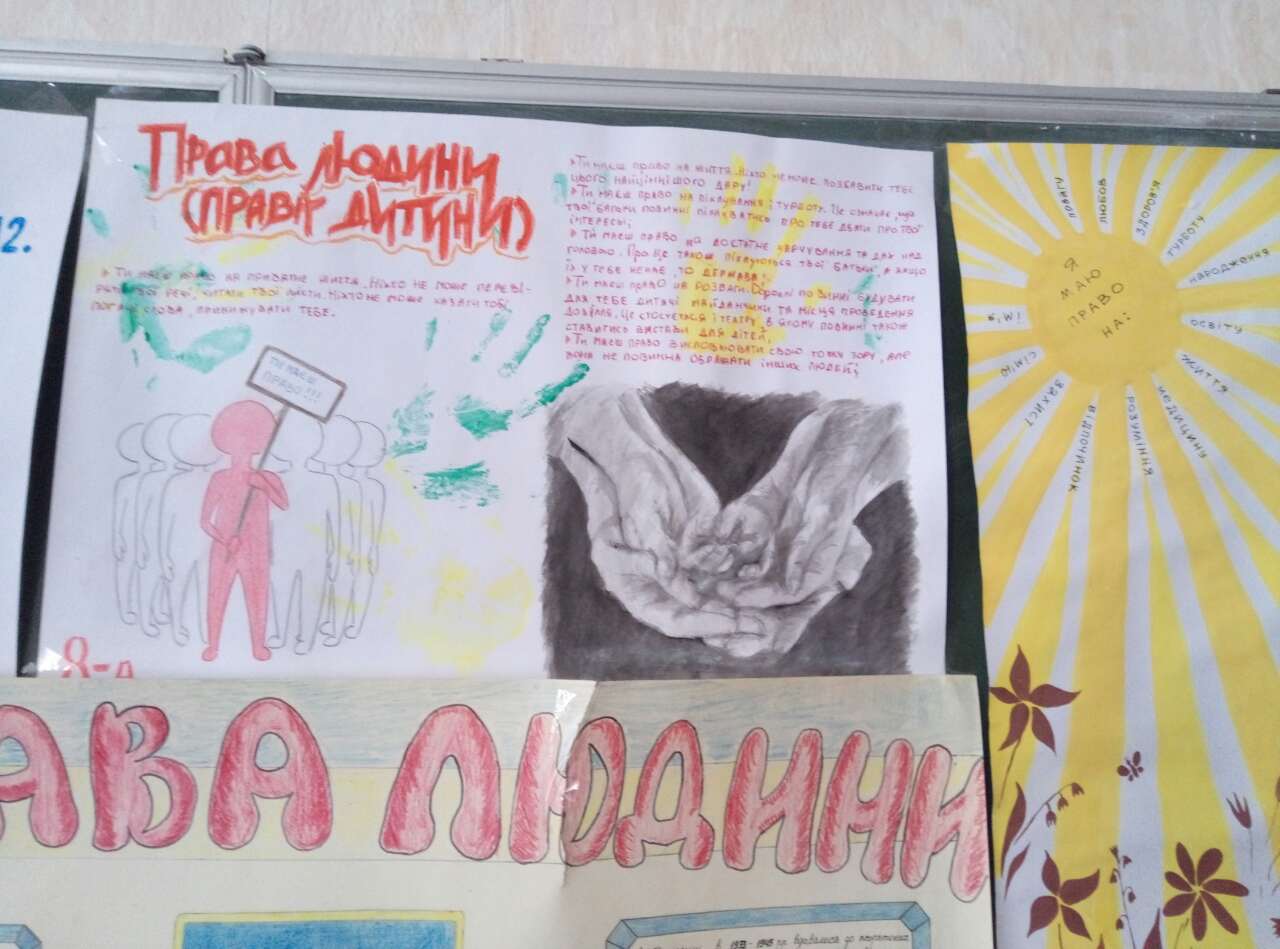 12.
Права людини
(права дитини)
➤ Ти маєш право на приватне життя. Ніхто не може переві-
ряти твої речі, читати твої листи. Ніхто не може казати тобі
погані слова, принижувати тебе.
ТИ МАЄШ
ПРАВО!!!
8-А
➤ Ти маєш право на життя. Ніхто не може позбавити тебе
цього найціннішого дару!
➤ Ти маєш право на піклування і турботу. Це означає, що
твої батьки повинні піклуватись про тебе, дбати про твої
інтереси;
➤ Ти маєш право на достатнє харчування та дах над
головою. Про це також піклуються твої батьки, а якщо
їх у тебе немає, то держава;
➤ Ти маєш право на розваги. Дорослі повинні будувати
для тебе дитячі майданчики та місця проведення
дозвілля. Це стосується і театру, в якому повинні також
ставитись вистави для дітей;
➤ Ти маєш право висловлювати свою точку зору, але
вона не повинна ображати інших людей;
Я
МАЮ
ПРАВО
НА:
ПОВАГУ
ЛЮБОВ
ЗДОРОВ'Я
ТУРБОТУ
НАРОДЖЕННЯ
ОСВІТУ
ЖИТТЯ
МЕДИЦИНУ
РОЗУМІННЯ
ВІДПОЧИНОК
ЗАХИСТ
СІМ'Ю
ІМ'Я
АВА ЛЮДИНИ
в 1933-1945 рр. вдавалися до